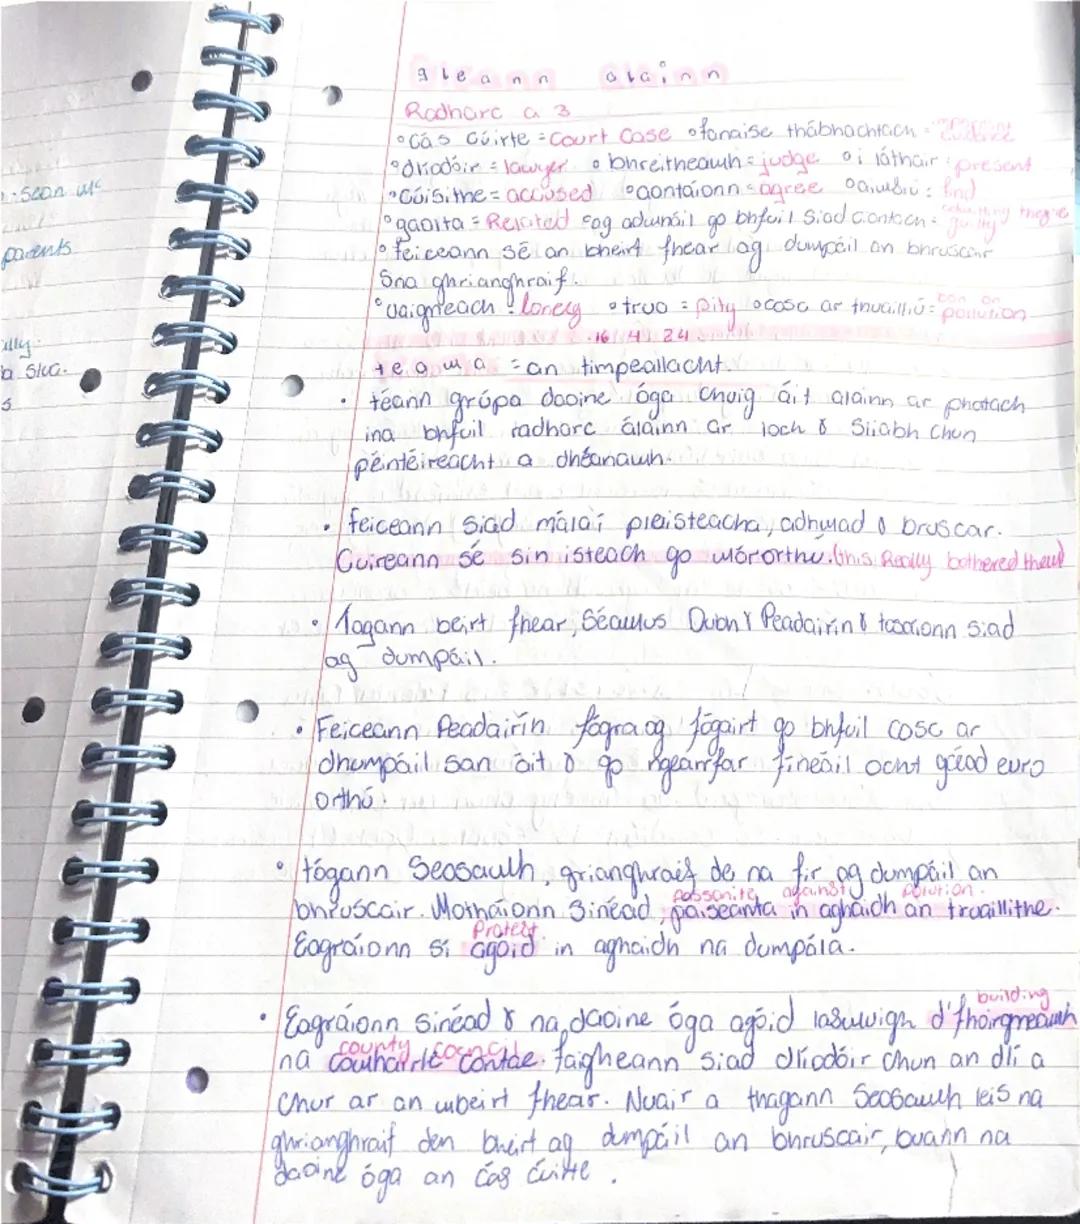 gleann alainn
Radharc a 3
cás cúirte = Court Case fanaise thábhachtach =
dlíodóir = lawyer bhreitheamh = judge i láthair : present
Cúisithe = accused aontaíonn = agree aimsiú : find
gaolta = Related ag admháil go bhfuil siad ciontach = guilty
feiceann sé an bheirt fhear ag dumpáil an bhruscair
Sna ghrianghraif.
Uaigneach : lonely trua = pity cosc ar thruailliú = ban on pollution
16 4 24
teama = an timpeallacht
téann grúpa daoine óga chuig áit alainn ar phatach
ina bhfuil radharc álainn ar loch & Sliabh chun
péintéireacht a dhéanamh.
feiceann siad málaí plaisteacha, adhmad & bruscar.
Cuireann sé sin isteach go mór orthu. (this Really bothered them)
Tagann beirt fhear, Séamus Dubh & Peadairín & tosaíonn siad
ag dumpáil.
Feiceann Peadairín fógra ag fógairt go bhfuil cosc ar
dhumpáil san áit & go ngearrfar fíneáil ocht gcéad euro
orthú
tógann Seosamh, grianghraif de na fir ag dumpáil an
passonite against polution.
bhruscair. Mothaíonn Sinéad, paiseanta in aghaidh an truaillithe.
Protest
Eagraíonn sí agóid in aghaidh na dumpála.
building
Eagráionn Sinéad & na daoine óga agóid lasmuigh d'fhoirgneamh
county council
na comhairle contae. faigheann siad dlíodóir chun an dlí a
Chur ar an mbeirt fhear. Nuair a thagann Seosamh leis na
ghrianghraif den bheirt ag dumpáil an bhruscair, buann na
daoine óga an cás cúirte.
parents